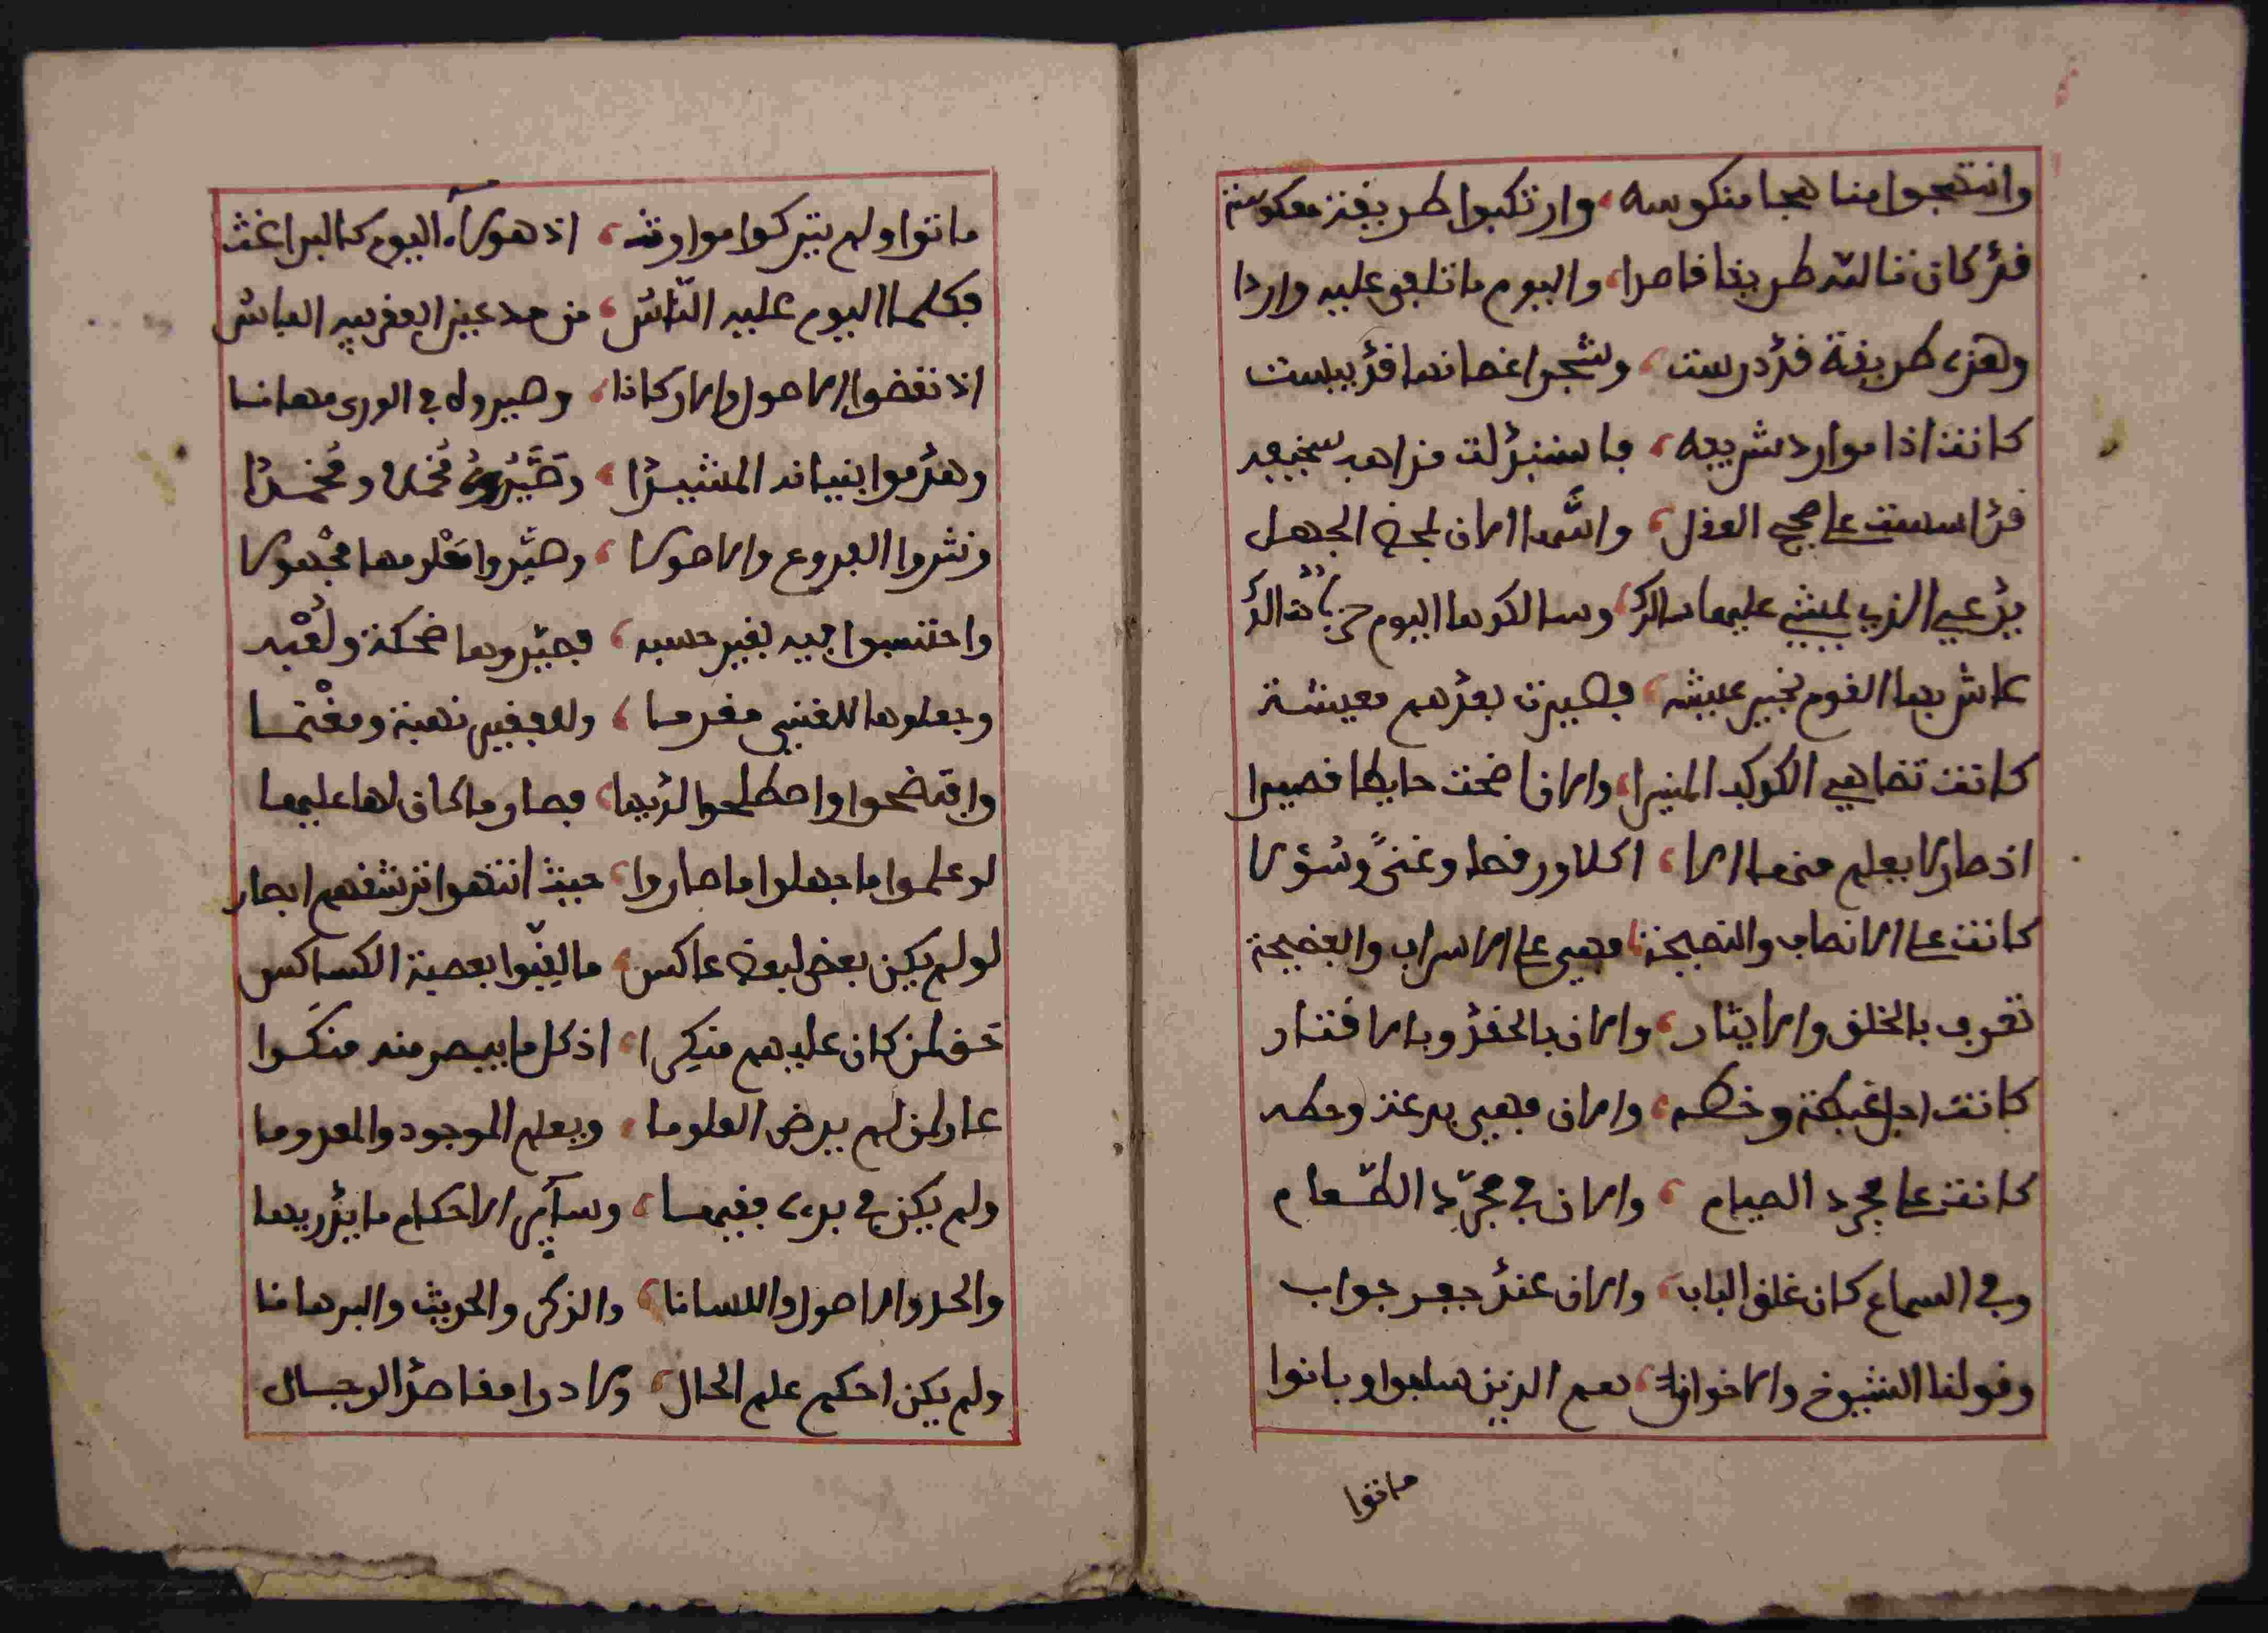 وانتهجوا مناهجا منكوسه، وارتكبوا طريقة معكوسة
قد كانت الله طريقا قاصدا، واليوم ما تلقى عليه واردا
وهذه طريقة قد درست، وشجر اغصانها قد يبست
كانت اذا موارد شريعه، فاستبدلت مذاهب شنيعه
قد اسست على صحيح العقل، وانها الان لمحض الجهل
يدعى الذي يمشي عليها سالك، وسالكوها اليوم حزب
عاش بها القوم بخير عيشه، فصيرت بعدهم معيشة
كانت تضاهي الكوكب المنيرا، والان اضحت حايطا قصيرا
اذ صار لا يعلم منها الا، اكلا ورقصا وغنى وسؤلا
كانت على الانصاف والنصيحة، فهي على الاسراف والفضيحة
تعرف بالخلق والايثار، والان بالحقد وبالاقتار
كانت اجل غبطة وخطه، والان فهي بدعة وحطه
كانت على مجرد الصيام، والان في مجرد الطعام
وفي السماع كان غلق الباب، والان عند جفر جواب
وقولنا الشيوخ والاخوان، نعم الذين سلفوا وبانوا
ماتوا
ماتوا ولم يتركوا موارث، اذ هولاء اليوم كالبراغث
فكلما اليوم عليه الناس، من مدعين الفقر فيه الباس
اذ نقضوا الاصول والاركانا، وصيروه في الورى مهانا
وهدموا بنيانه المشيدا، وصيروه مخملا ومخمدا
ونثروا الفروع والاصولا، وصيروا معلومها مجهولا
واحتسبوا فيه بغير حسبه، فصيروها ضحكة ولعبه
وجعلوها للغني مغرما، وللفقير نهبة ومغنما
وافتضحوا واصطلحوا لديها، فصار ما كان لها عليها
لو علموا ما جهلوا ما صاروا، حيث انتهوا ترشقهم ابصار
لو لم يكن بعض لبعض عاكس، ما لقبوا بعصبة الكساكس
حق لمن كان عليهم منكرا، اذ كل ما يبصر منه منكرا
عار لمن لم يرض العلوما، ويعلم الموجود والمعدوما
ولم يكن في بدئه فقيها، وسائر الاحكام ما يدريها
والحد والاصول واللسانا، والذكر والحديث والبرهانا
ولم يكن احكم علم الحال، ولا درا مقاصد الرجال